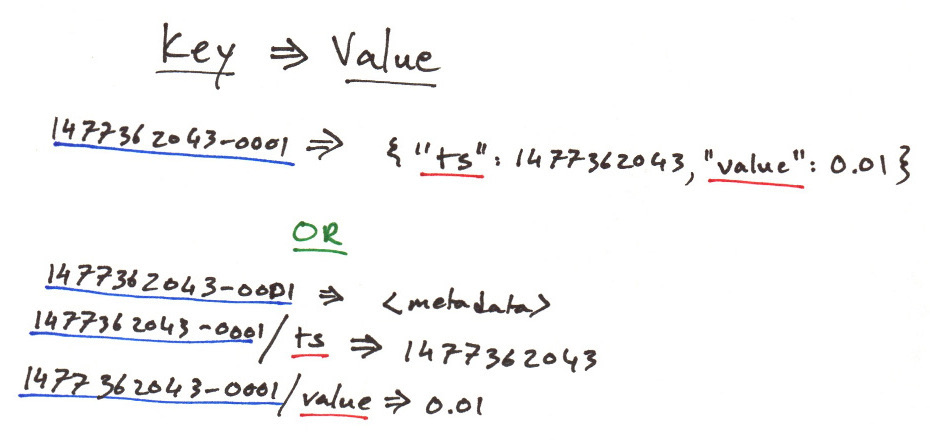 Key ⇒ Value
1477362043-0001 ⇒ {"ts": 1477362043, "value": 0.01}
OR
1477362043-0001 ⇒ <metadata>
1477362043-0001/ts ⇒ 1477362043
1477362043-0001/value ⇒ 0.01